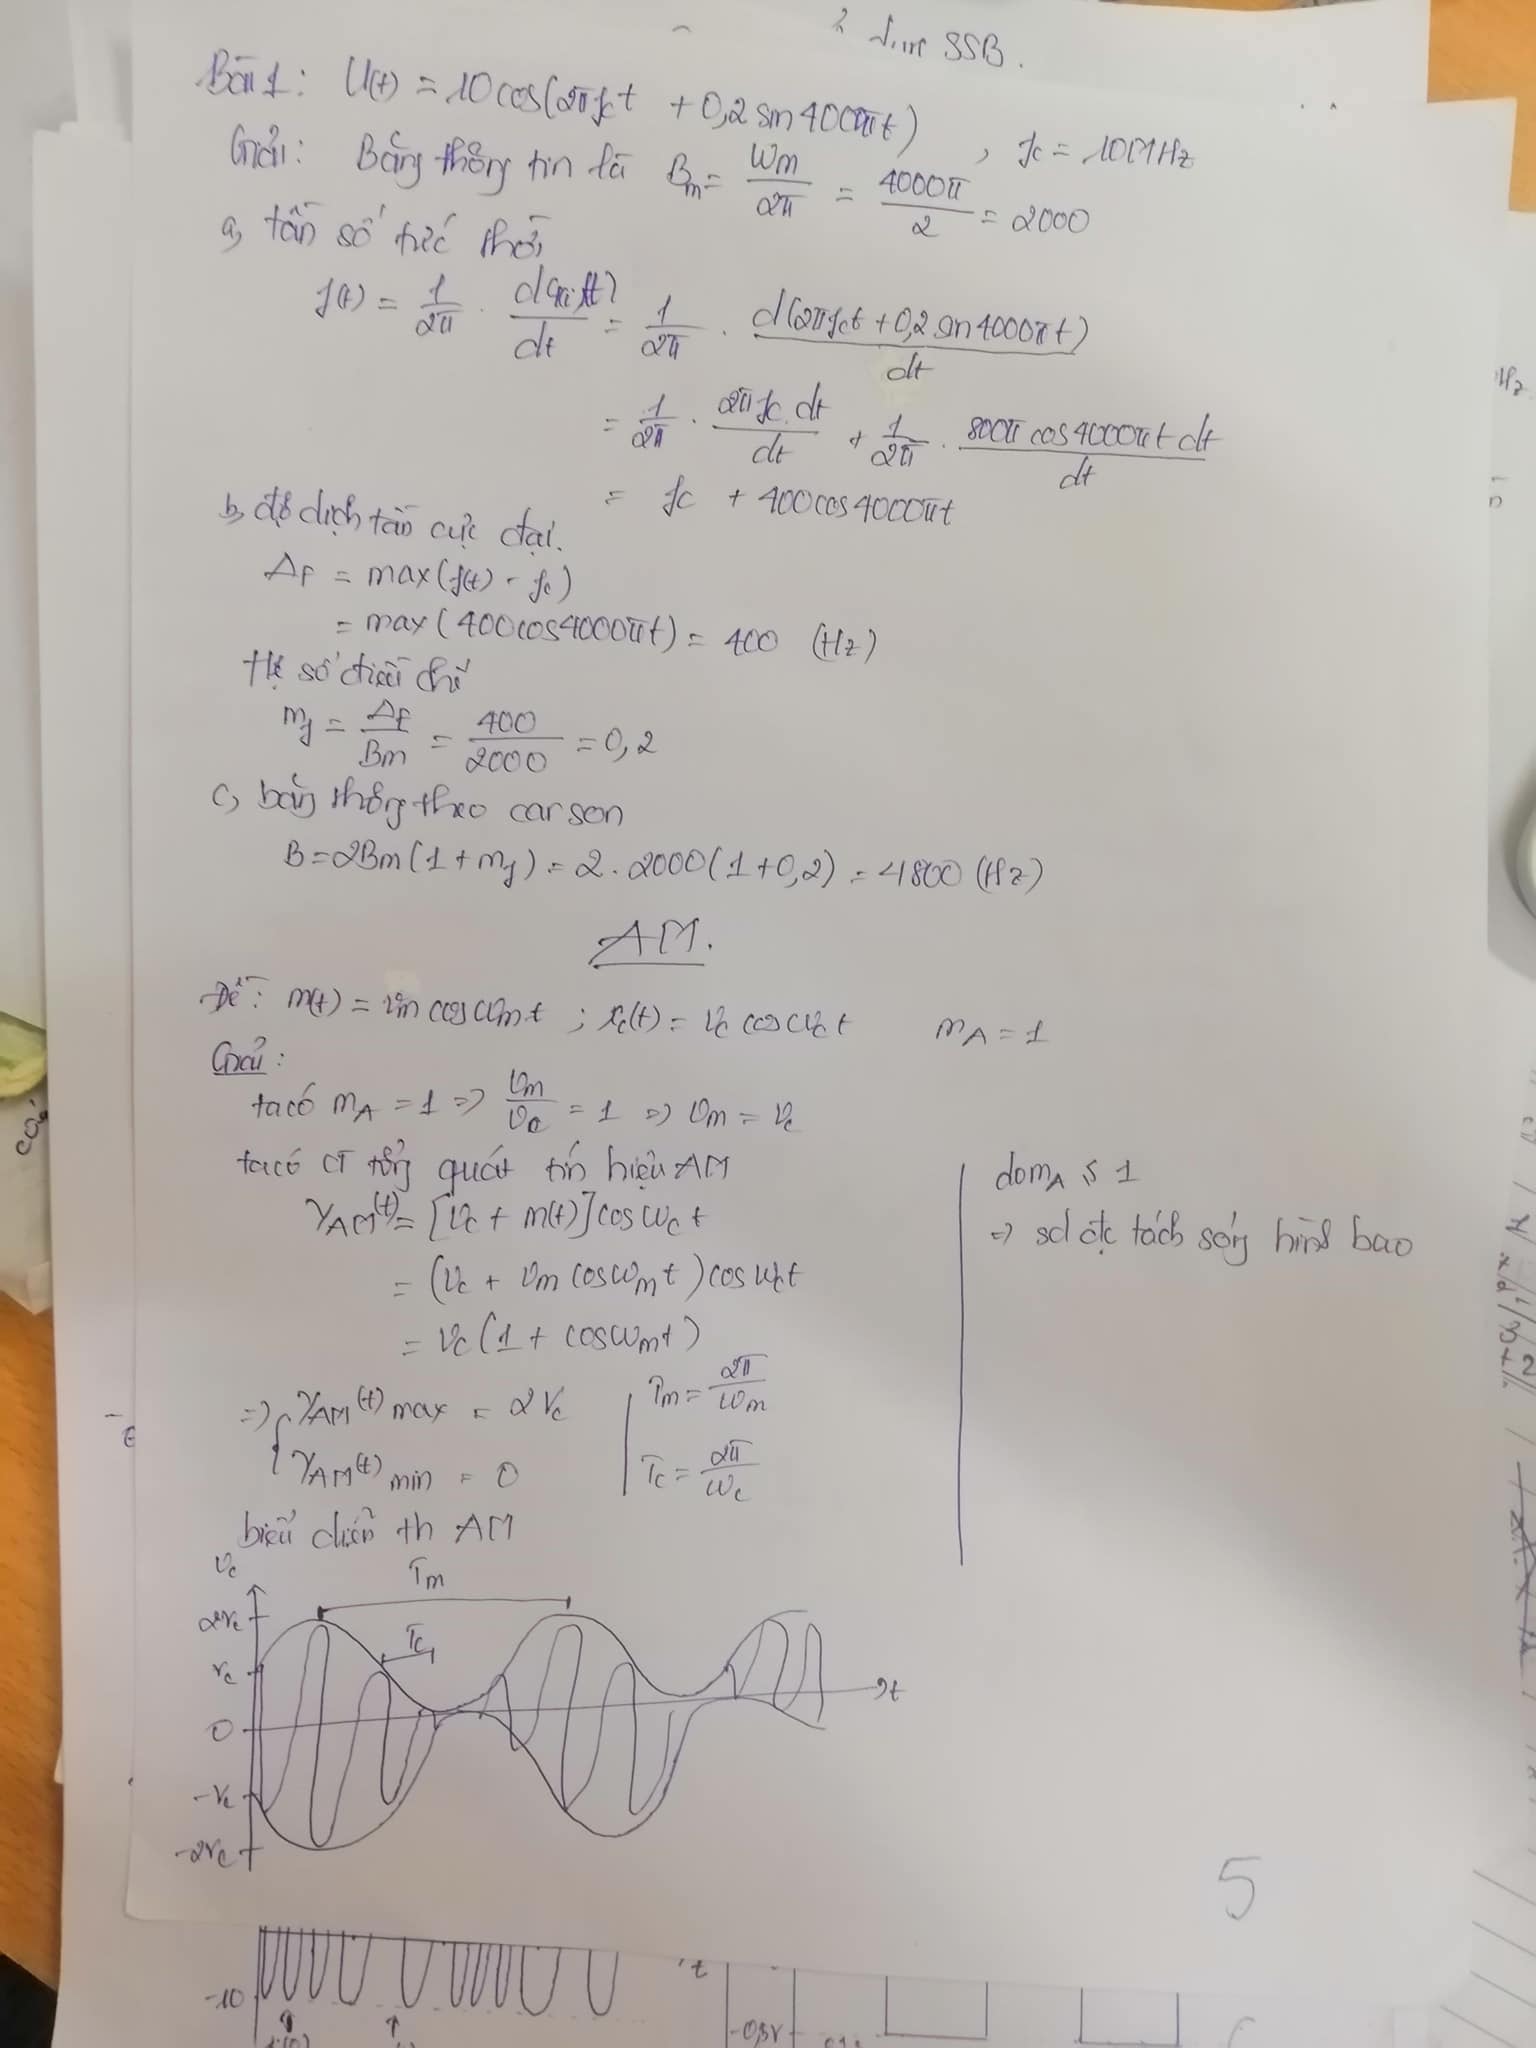 dụng SSB.
Bài 1: U(t) = 10 cos(2πfct + 0,2 sin 4000πt), fc = 10MHz
Giải: Băng thông tin là Bm = ωm/2π = 4000π/2 = 2000
a, tần số tức thời
f(t) = 1/2π . dφi(t)/dt = 1/2π . d(2πfct + 0,2 sin 4000πt)/dt
= 1/2π . 2πfc.dt/dt + 1/2π . 800π cos 4000πt dt/dt
= fc + 400cos 4000πt
b, độ dịch tần cực đại.
ΔF = max(f(t) - fc)
= max(400cos4000πt) = 400 (Hz)
Hệ số điều chế
mf = ΔF/Bm = 400/2000 = 0,2
c, băng thông theo carson
B = 2Bm(1 + mf) = 2 . 2000(1+0,2) = 4800 (Hz)
AM.
Đề: m(t) = Vm cos ωmt ; xc(t) = Vc cos ωct mA = 1
Giải:
ta có mA = 1 => Vm/Vc = 1 => Vm = Vc
ta có CT tổng quát tín hiệu AM
YAM(t) = [Vc + m(t)] cos ωct
= (Vc + Vm cos ωmt) cos ωct
= Vc (1 + cos ωmt)
=> { YAM(t) max = 2Vc
YAM(t) min = 0
Tm = 2π/ωm
Tc = 2π/ωc
do mA ≤ 1
=> sd đc tách sóng hình bao
biểu diễn th AM
Vc
Tm
2Vc
Tc
Vc
t
0
-Vc
-2Vc
5
t
-10
-0,5V